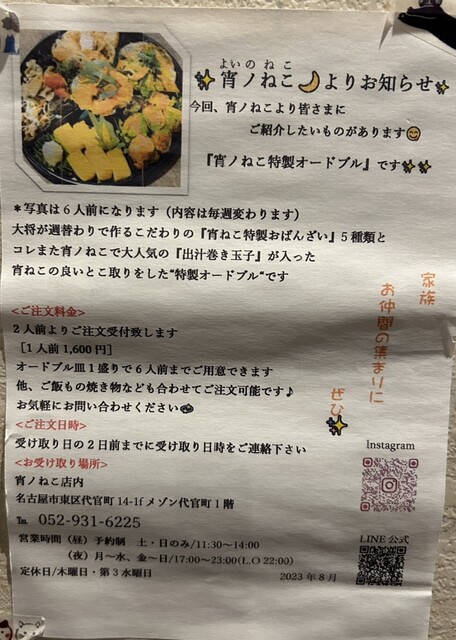 よいのねこ
✨宵ノねこ🌙よりお知らせ✨
今回、宵ノねこより皆さまに
ご紹介したいものがあります😊
『宵ノねこ特製オードブル』です✨✨
＊写真は６人前になります（内容は毎週変わります）
大将が週替わりで作るこだわりの『宵ねこ特製おばんざい』５種類と
コレまた宵ノねこで大人気の『出汁巻き玉子』が入った
宵ねこの良いとこ取りをした“特製オードブル“です
家族
お仲間の集まりに
ぜひ✨
<ご注文料金>
２人前よりご注文受付致します
［1 人前 1,600 円］
オードブル皿１盛りで６人前までご用意できます
他、ご飯もの焼き物なども合わせてご注文可能です♪
お気軽にお問い合わせください
<ご注文日時>
受け取り日の２日前までに受け取り日時をご連絡下さい
<お受け取り場所>
宵ノねこ店内
名古屋市東区代官町 14-1f メゾン代官町１階
℡ 052-931-6225
営業時間（昼）予約制 土・日のみ/11:30～14:00
（夜）月～水、金～日/17:00～23:00(L.O 22:00)
定休日/木曜日・第３水曜日
2023 年 8 月
Instagram
LINE 公式